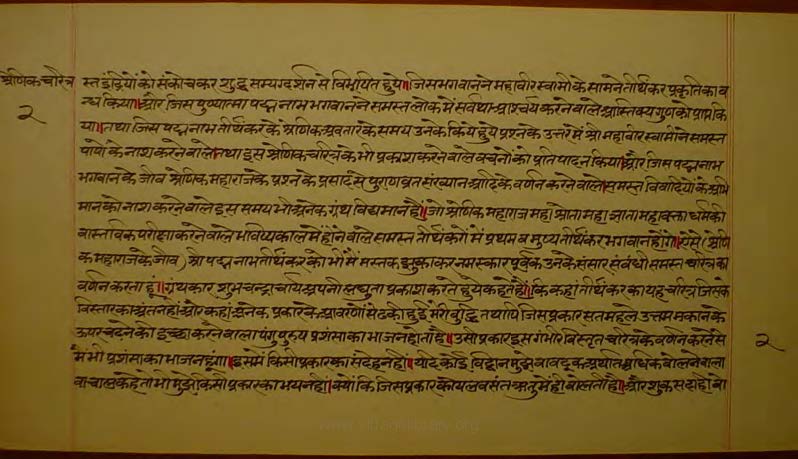 श्रेणिक चरित्र
२
स्त इंद्रियों को संकोचकर शुद्ध सम्यग्दर्शन से विभूषित हुये॥जिस भगवान ने महावीर स्वामी के सामने तीर्थंकर प्रकृति का व
न्ध किया॥और जिस पुण्यात्मा पद्मनाभ भगवान ने समस्त लोक में सर्वथा आश्चर्य करने वाले आस्तिक्य गुण को प्राप्त कि
या॥तथा जिस पद्मनाभ तीर्थंकर के श्रेणिक अवतार के समय उनके किये हुये प्रश्न के उत्तर में श्री महावीर स्वामी ने समस्त
पापों के नाश करने वाले तथा इस श्रेणिक चरित्र के भी प्रकाश करने वाले वचनों को प्रतिपादन किया॥और जिस पद्मनाभ
भगवान के जीव श्रेणिक महाराज के प्रश्न के प्रसाद से पुराण व्रत संख्यान आदि के वर्णन करने वाले॥समस्त विवादियों के अभि
मान को नाश करने वाले इस समय भी अनेक ग्रंथ विद्यमान हैं॥जो श्रेणिक महाराज महाश्रोता महाज्ञाता महावक्ता धर्म की
वास्तविक परीक्षा करने वाले भविष्यकाल में होने वाले समस्त तीर्थंकरों में प्रथम व मुख्य तीर्थंकर भगवान होंगे॥ऐसे श्रेणि
क महाराज के जीव) श्री पद्मनाभ तीर्थंकर को भी मैं मस्तक झुका कर नमस्कार पूर्वक उनके संसार संबंधी समस्त चरित्र का
वर्णन करता हूं॥ग्रंथकार शुभचन्द्राचार्य अपनी लघुता प्रकाश करते हुये कहते हैं॥कि कहां तीर्थंकर का यह चरित्र जिसके
विस्तार का अंत नहीं और कहां अनेक प्रकार के आवरणों से ढकी हुई मेरी बुद्धि तथापि जिस प्रकार सतमहले उत्तम मकान के
ऊपर चढ़ने की इच्छा करने वाला पंगु पुरुष प्रशंसा का भाजन होता है॥उसी प्रकार इस गंभीर विस्तृत चरित्र के वर्णन करने से
मैं भी प्रशंसा का भाजन हूंगा॥इसमें किसी प्रकार का संदेह नहीं॥यदि कोई विद्वान मुझे वावदूक अर्थात् अधिक बोलने वाला
वाचाल कहे तो भी मुझे किसी प्रकार का भय नहीं॥क्यों कि जिस प्रकार कोयल वसंत ऋतु में ही बोलती है॥और शुक सदा ही बो
२